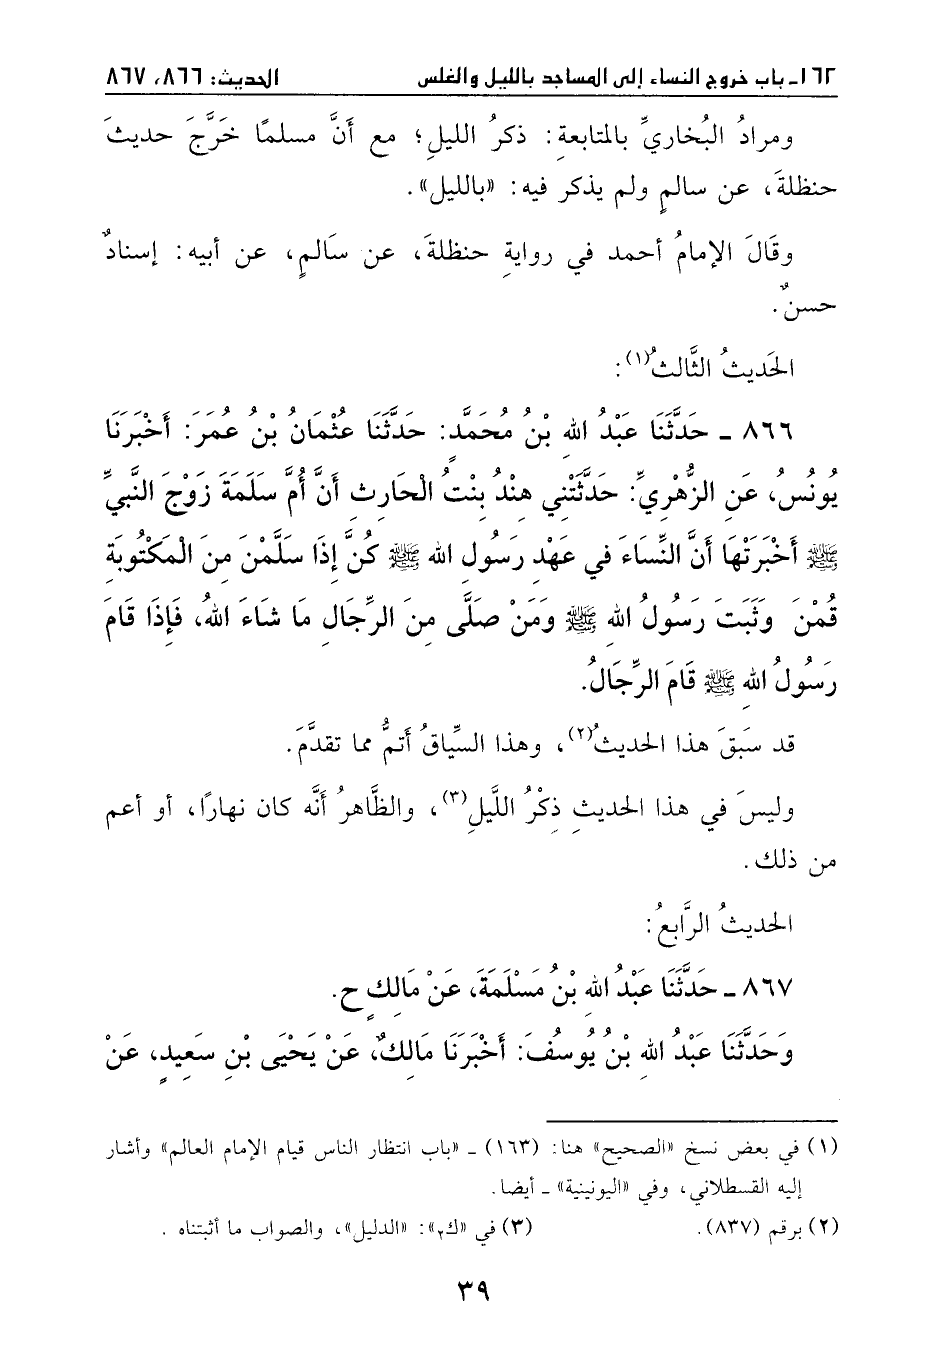 ١٦٢ـ باب خروج النساء إلى المساجد بالليل والغلس الحديث: ٨٦٦، ٨٦٧
ومرادُ البُخاريِّ بالمتابعةِ: ذكرُ الليلِ؛ مع أَنَّ مسلمًا خَرَّجَ حديثَ
حنظلةَ، عن سالمٍ ولم يذكر فيه: «بالليل».
وقَالَ الإمامُ أحمد في روايةِ حنظلةَ، عن سَالمٍ، عن أبيه: إسنادٌ
حسنٌ.
الحَديثُ الثَّالثُ(١):
٨٦٦ ـ حَدَّثَنَا عَبْدُ اللهِ بْنُ مُحَمَّدٍ: حَدَّثَنَا عثْمَانُ بْنُ عُمَرَ: أَخْبَرَنَا
يُونُسُ، عَنِ الزُّهْرِيِّ: حَدَّثَتْنِي هِنْدُ بِنْتُ الْحَارِثِ أَنَّ أُمَّ سَلَمَةَ زَوْجَ النَّبيِّ
ﷺ أَخْبَرَتْهَا أَنَّ النِّسَاءَ في عَهْدِ رَسُولِ اللهِ ﷺ كُنَّ إِذَا سَلَّمْنَ مِنَ الْمَكْتُوبَةِ
قُمْنَ وَثَبَتَ رَسُولُ اللهِ ﷺ وَمَنْ صَلَّى مِنَ الرِّجَالِ مَا شَاءَ اللهُ، فَإِذَا قَامَ
رَسُولُ اللهِ ﷺ قَامَ الرِّجَالُ.
قد سَبَقَ هذا الحديثُ(٢)، وهذا السِّياقُ أَتمُّ مما تقدَّمَ.
وليسَ في هذا الحديثِ ذِكْرُ اللَّيلِ(٣)، والظَّاهرُ أَنَّه كان نهارًا، أو أعم
من ذلك.
الحديثُ الرَّابعُ:
٨٦٧ ـ حَدَّثَنَا عَبْدُ اللهِ بْنُ مَسْلَمَةَ، عَنْ مَالِكٍ ح.
وَحَدَّثَنَا عَبْدُ اللهِ بْنُ يُوسُفَ: أَخْبَرَنَا مَالِكٌ، عَنْ يَحْيَى بْنِ سَعِيدٍ، عَنْ
(١) في بعض نسخ «الصحيح» هنا: (١٦٣) ـ «باب انتظار الناس قيام الإمام العالم» وأشار
إليه القسطلاني، وفي «اليونينية» ـ أيضا.
(٢) برقم (٨٣٧). (٣) في «ك٢»: «الدليل»، والصواب ما أثبتناه .
٣٩